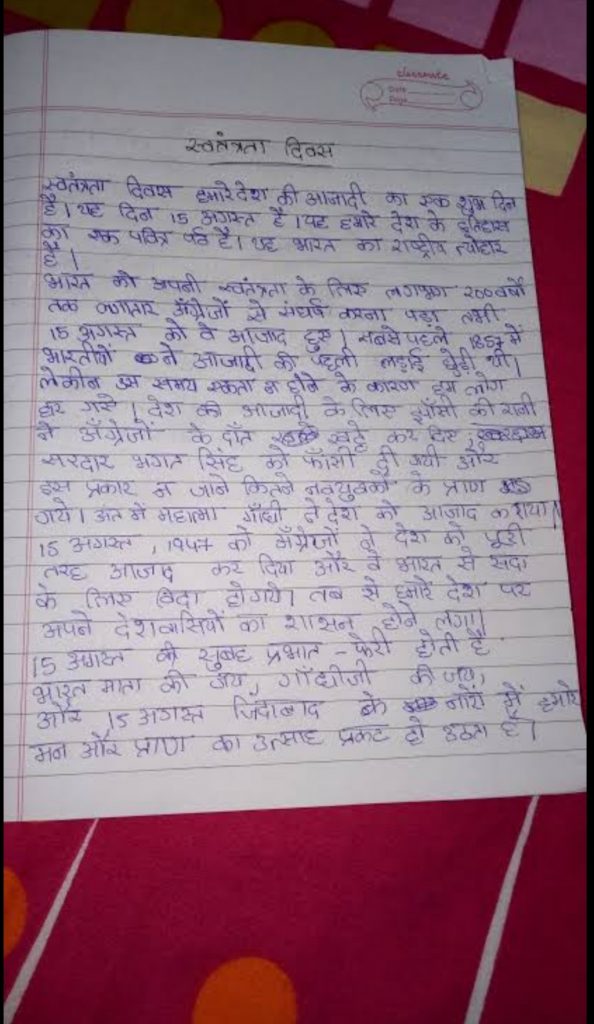 classmate
Date
Page
स्वतंत्रता दिवस
स्वतंत्रता दिवस हमारे देश की आजादी का एक शुभ दिन
है। यह दिन 15 अगस्त है। यह हमारे देश के इतिहास
का एक पवित्र पर्व है। यह भारत का राष्ट्रीय त्योहार
है।
भारत को अपनी स्वतंत्रता के लिए लगभग 200 वर्षों
तक लगातार अँग्रेजों से संघर्ष करना पड़ा तभी
15 अगस्त को वे आजाद हुए। सबसे पहले, 1857 में
भारतीयों ने आजादी की पहली लड़ाई छेड़ी थी।
लेकीन उस समय एकता न होने के कारण हम लोग
हार गए। देश की आजादी के लिए झाँसी की रानी
ने अँग्रेजों के दाँत खट्टे कर दिए,
सरदार भगत सिंह को फाँसी दी गयी और
इस प्रकार न जाने कितने नवयुवकों के प्राण
गये। अंत में महात्मा गाँधी ने देश को आजाद कराया।
15 अगस्त, 1947 को अँग्रेजों ने देश को पूरी
तरह आजाद कर दिया और वे भारत से सदा
के लिए विदा हो गये। तब से हमारे देश पर
अपने देशवासियों का शासन होने लगा।
15 अगस्त की सुबह प्रभात-फेरी होती है
भारत माता की जय, गाँधीजी की जय,
और 15 अगस्त जिंदाबाद के नारों में हमारे
मन और प्राण का उत्साह प्रकट हो उठता है।